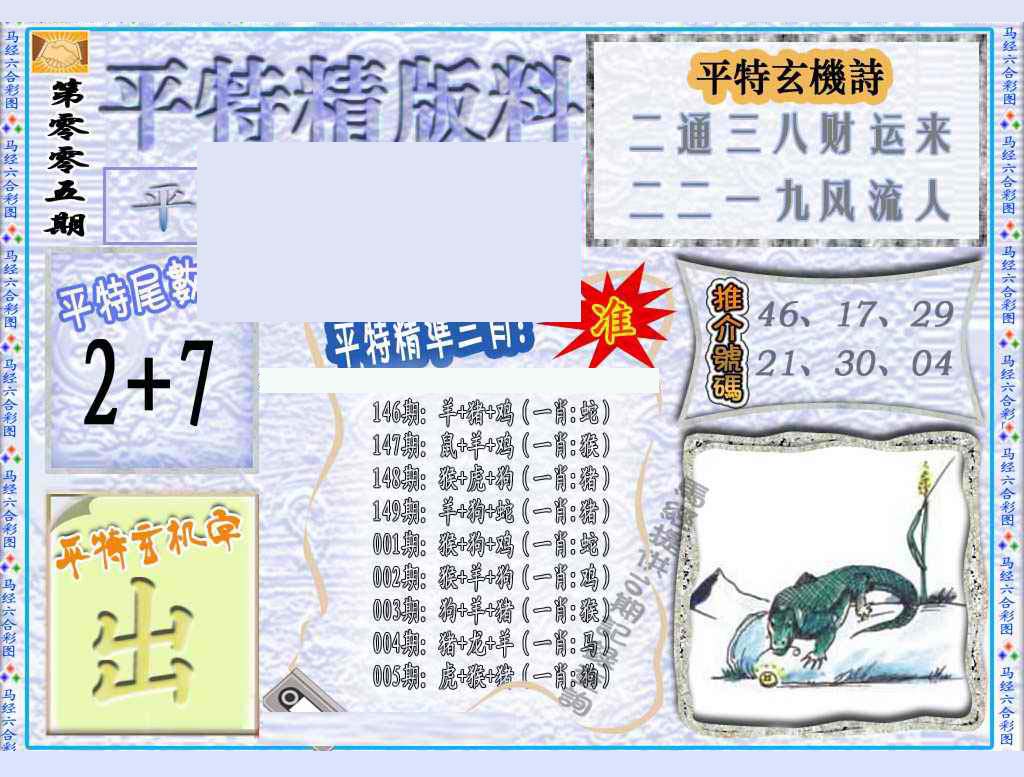 第零零五期
平特精版料
平
平特玄機詩
二通三八财运来
二二一九风流人
平特尾數
2+7
平特精準三肖!
准
推介號碼
46、17、29
21、30、04
146期: 羊+猪+鸡(一肖:蛇)
147期: 鼠+羊+鸡(一肖:猴)
148期: 猴+虎+狗(一肖:猪)
149期: 羊+狗+蛇(一肖:猪)
001期: 猴+狗+鸡(一肖:蛇)
002期: 猴+羊+狗(一肖:鸡)
003期: 狗+羊+猪(一肖:猴)
004期: 猪+龙+羊(一肖:马)
005期: 虎+猴+猪(一肖:狗)
平特玄机字
出
马经六合彩图
马经六合彩图
马经六合彩图
马经六合彩图
马经六合彩图
马经六合彩图
马经六合彩
马经六合彩图
马经六合彩图
马经六合彩图
马经六合彩图
马经六合彩图
马经六合彩图
马经六合彩图